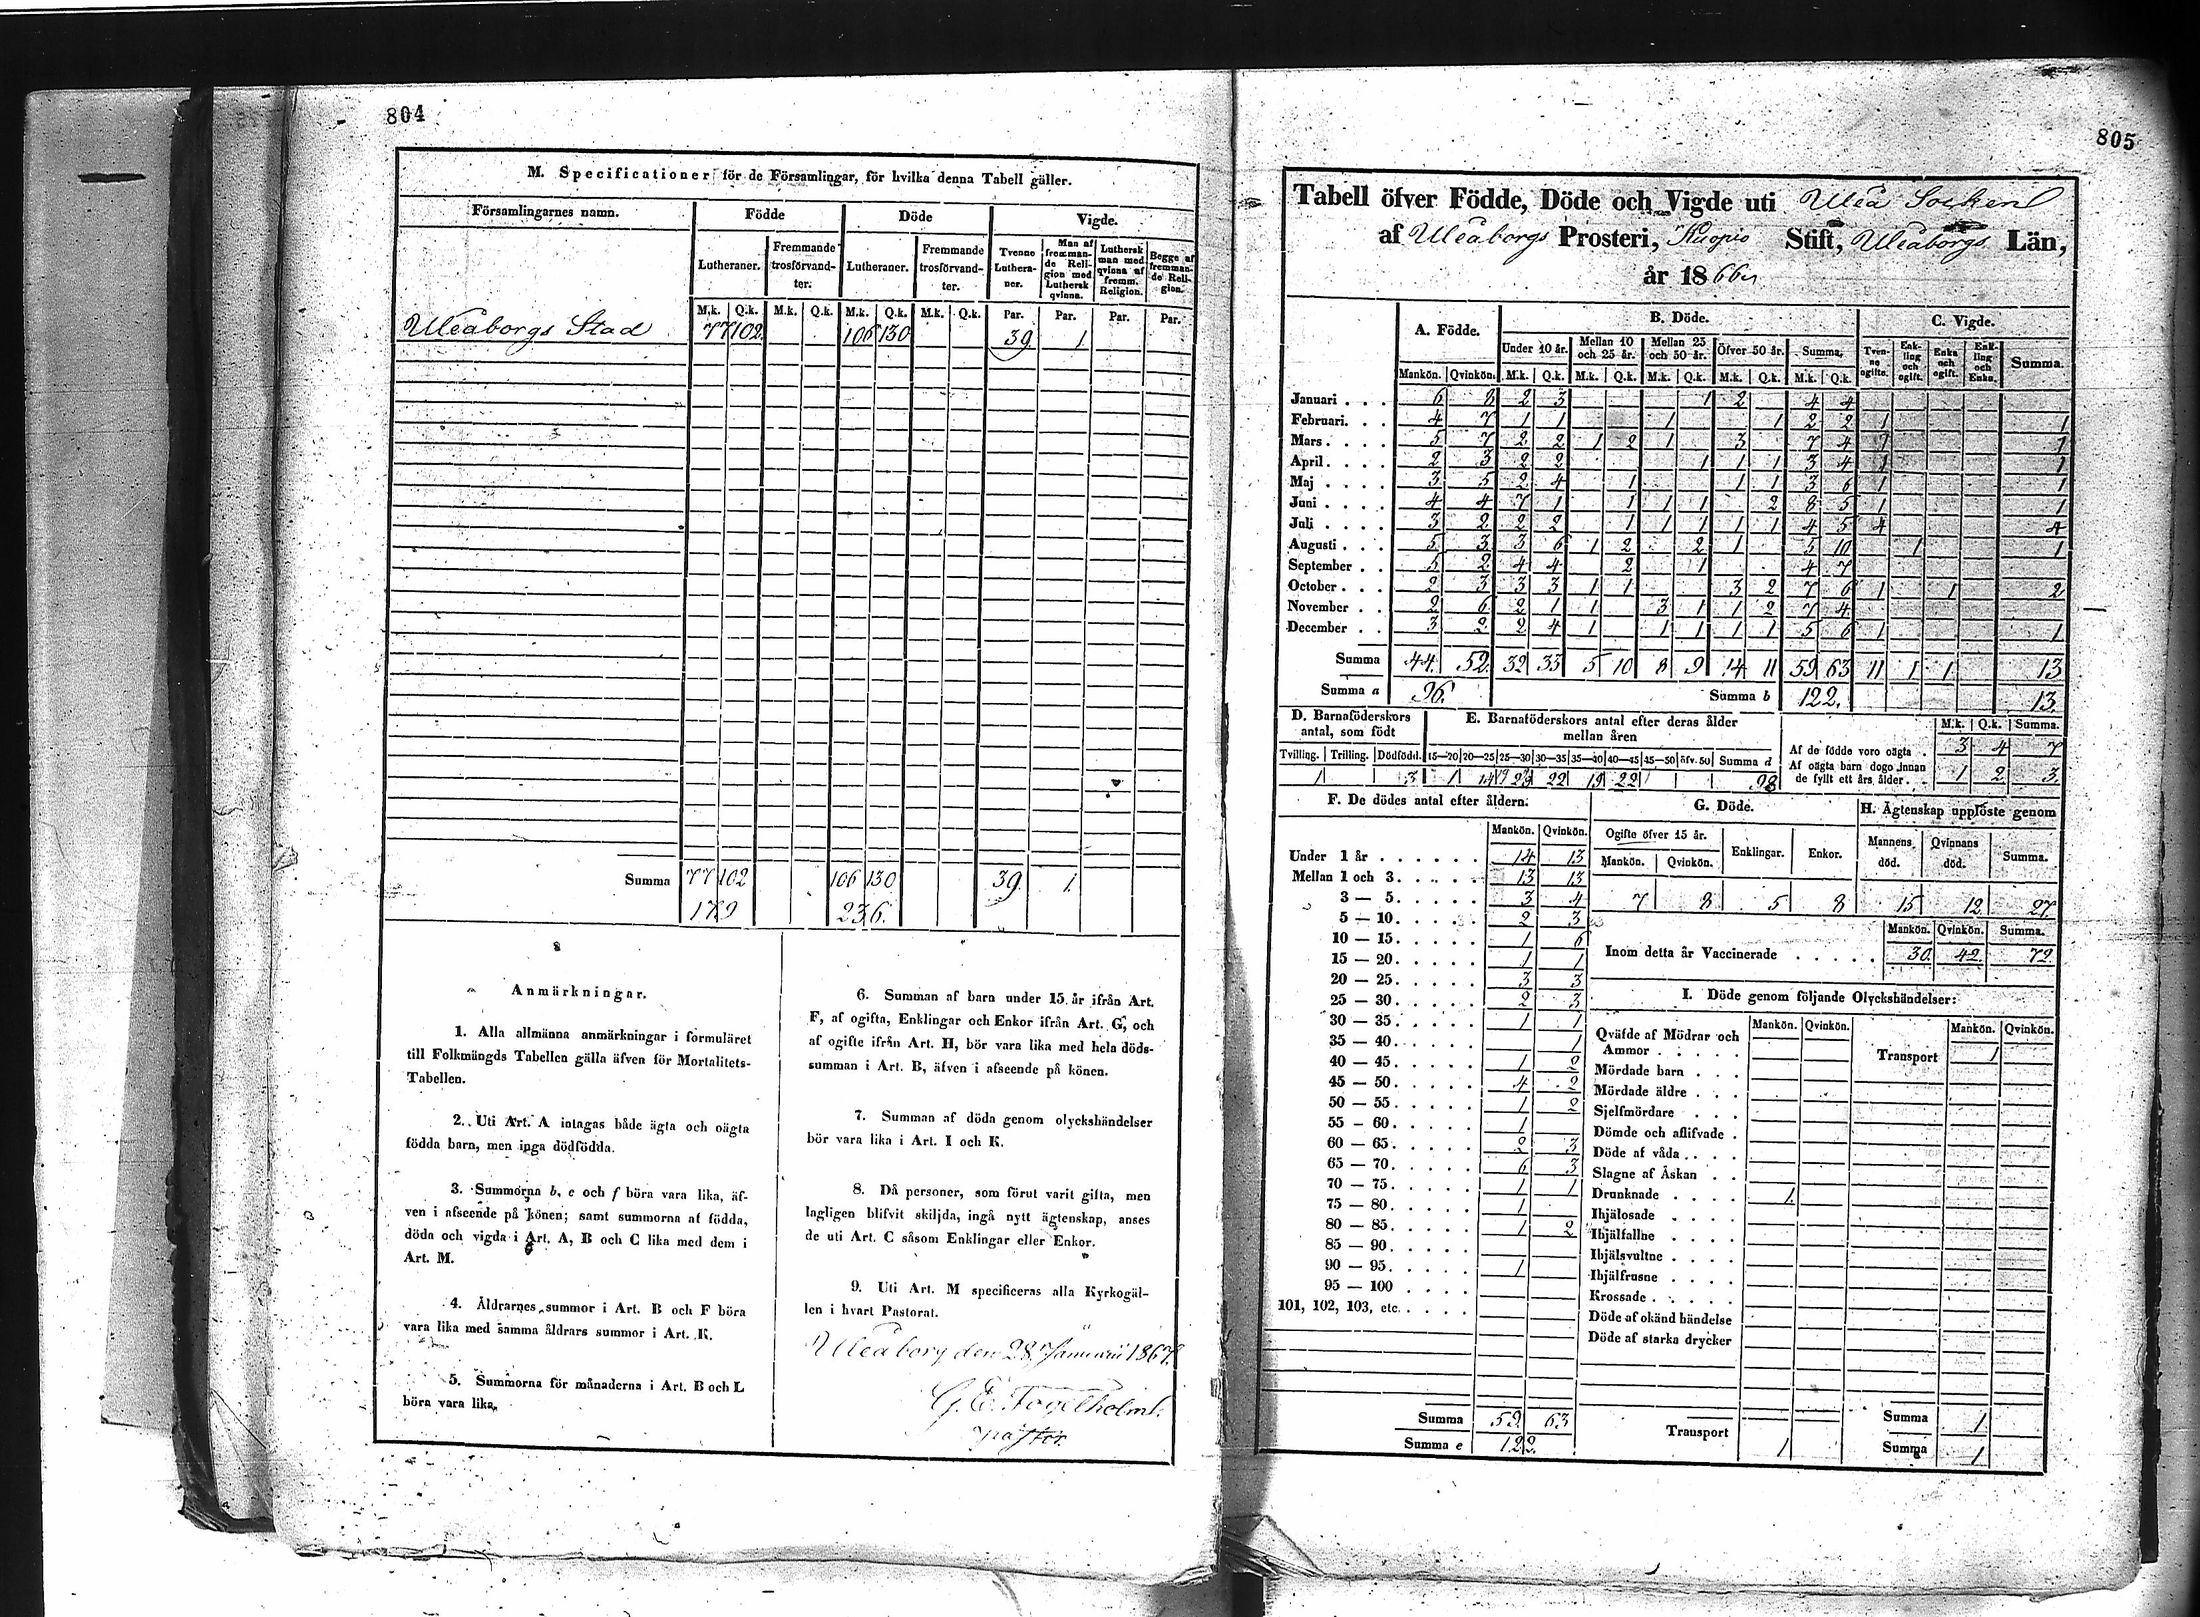 804
M. Specificationer för de Församlingar, för hvilka denna Tabell gäller.
Församlingarnes namn. Födde Döde Vigde.
Lutheraner. Fremmande trosförvandter. Lutheraner. Fremmande trosförvandter. Tvenne Lutheraner. Man af fremmande Religion med Luthersk qvinna. Luthersk man med qvinna af fremm. Religion. Begge af fremmande Religion.
M.k. Q.k. M.k. Q.k. M.k. Q.k. M.k. Q.k. Par. Par. Par. Par.
Uleåborgs Stad 77 102 106 130 39 1
Summa 77 102 106 130 39 1
179 236.
Anmärkningar.
1. Alla allmänna anmärkningar i formuläret
till Folkmängds Tabellen gälla äfven för Mortalitets-
Tabellen.
2. Uti Art. A intagas både ägta och oägta
födda barn, men inga dödfödda.
3. Summorna b, e och f böra vara lika, äf-
ven i afseende på könen; samt summorna af födda,
döda och vigda i Art. A, B och C lika med dem i
Art. M.
4. Åldrarnes summor i Art. B och F böra
vara lika med samma åldrars summor i Art. K.
5. Summorna för månaderna i Art. B och L
böra vara lika.
6. Summan af barn under 15 år ifrån Art.
F, af ogifta, Enklingar och Enkor ifrån Art. G, och
af ogifte ifrån Art. H, bör vara lika med hela döds-
summan i Art. B, äfven i afseende på könen.
7. Summan af döda genom olyckshändelser
bör vara lika i Art. I och K.
8. Då personer, som förut varit gifta, men
lagligen blifvit skiljda, ingå nytt ägtenskap, anses
de uti Art. C såsom Enklingar eller Enkor.
9. Uti Art. M specificeras alla Kyrkogäl-
len i hvart Pastorat.
Uleåborg den 28 Januari 1867.
G. E. Fogelholm.
pastor.
805
Tabell öfver Födde, Döde och Vigde uti Uleå Socken
af Uleåborgs Prosteri, Kuopio Stift, Uleåborgs Län,
år 1866
A. Födde. B. Döde. C. Vigde.
Under 10 år. Mellan 10 och 25 år. Mellan 25 och 50 år. Öfver 50 år. Summa. Tvenne ogifte. Enkling och ogift. Enka och ogift. Enkling och Enka. Summa.
Mankön. Qvinkön. M.k. Q.k. M.k. Q.k. M.k. Q.k. M.k. Q.k. M.k. Q.k.
Januari 6 8 2 3 1 2 4 4
Februari 4 7 1 1 1 1 2 2 1 1
Mars 5 7 2 2 1 2 1 3 7 4 1 1
April 2 3 2 2 1 1 1 3 4 1 1
Maj 3 5 2 4 1 1 1 3 6 1 1
Juni 4 4 7 1 1 1 1 2 8 5 1 1
Juli 3 2 2 2 1 1 1 1 1 4 5 4 4
Augusti 5 3 3 6 1 2 2 1 5 10 1 1
September 5 2 4 4 2 1 4 7
October 2 3 3 3 1 1 3 2 7 6 1 1 2
November 2 6 2 1 1 3 1 1 2 7 4
December 3 2 2 4 1 1 1 1 1 5 6 1 1
Summa 44 52 32 33 5 10 8 9 14 11 59 63 11 1 1 13
Summa a 96. Summa b 122. 13.
D. Barnaföderskors antal, som födt
E. Barnaföderskors antal efter deras ålder mellan åren
M.k. Q.k. Summa.
Tvilling. Trilling. Dödfödd. 15—20 20—25 25—30 30—35 35—40 40—45 45—50 öfv. 50 Summa d
1 3 1 14 22 19 22
Af de födde voro oägta 3 4 7
Af oägta barn dogo innan
de fyllt ett års ålder 1 2 3.
F. De dödes antal efter åldern.
Mankön. Qvinkön.
Under 1 år 14 13
Mellan 1 och 3 13 13
3 — 5 3 4
5 — 10 2 3
10 — 15 1 6
15 — 20 1 1
20 — 25 3 3
25 — 30 2 3
30 — 35 1 1
35 — 40 1
40 — 45 1 2
45 — 50 4 2
50 — 55 1 2
55 — 60 1
60 — 65 2 3
65 — 70 6 3
70 — 75 1 1
75 — 80 1
80 — 85 1 2
85 — 90
90 — 95 1
95 — 100
101, 102, 103, etc.
Summa 59 63
Summa e 122.
G. Döde.
Ogifte öfver 15 år. Enklingar. Enkor.
Mankön. Qvinkön.
7 8 5 8
H. Ägtenskap upplöste genom
Mannens död. Qvinnans död. Summa.
15 12 27.
Mankön. Qvinkön. Summa.
Inom detta år Vaccinerade 30 42 72
I. Döde genom följande Olyckshändelser:
Mankön. Qvinkön. Mankön. Qvinkön.
Qväfde af Mödrar och
Ammor
Transport 1
Mördade barn
Mördade äldre
Sjelfmördare
Dömde och aflifvade
Döde af våda
Slagne af Åskan
Drunknade 1.
Ihjälosade
Ihjälfallne
Ihjälsvultne
Ihjälfrusne
Krossade
Döde af okänd händelse
Döde af starka drycker
Transport 1
Summa 1
Summa 1